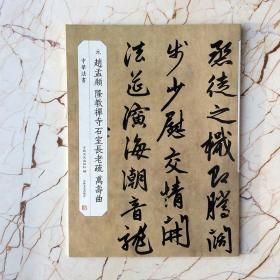 中華法書
元 趙孟頫 隆教禪寺石室長老疏 萬壽曲
烝徒之檝即騰闊
步少慰交情開
法筵演海潮音龍